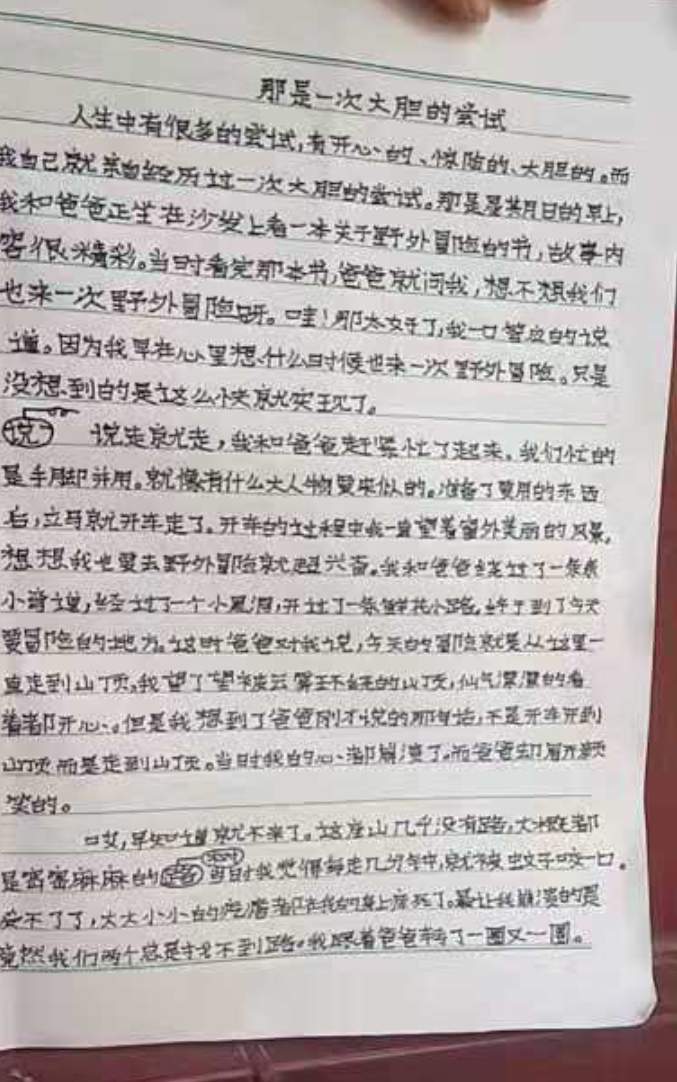 那是一次大胆的尝试
人生中有很多的尝试,有开心的、惊险的、大胆的。而
我自己就亲自经历过一次大胆的尝试。那是星期日的早上,
我和爸爸正坐在沙发上看一本关于野外冒险的书,故事内
容很精彩。当时看完那本书,爸爸就问我,想不想我们
也来一次野外冒险呀。哇!那太好了,我一口答应的说
道。因为我早在心里想什么时候也来一次野外冒险。只是
没想到的是这么快就实现了。
说走就走,我和爸爸赶紧忙了起来。我们忙的
是手脚并用。就像有什么大人物要来似的。准备了要用的东西
后,立马就开车走了。开车的过程中我一直望着窗外美丽的风景,
想想我也要去野外冒险就超兴奋。我和爸爸绕过了一条条
小弯道,经过了一个小黑洞,开过了一条鲜花小路。终于到了今天
要冒险的地方。这时爸爸对我说,今天的冒险就是从这里一
直走到山顶,我望了望被云雾环绕的山顶,仙气漂漂的看
着都开心。但是我想到了爸爸刚才说的那句话,不是开车开到
山顶而是走到山顶。当时我的心都崩溃了。而爸爸却眉开颜
笑的。
哎,早知道就不来了。这座山几乎没有路,大概都
是密密麻麻的 当时我觉得每走几分钟,就被虫蚊子咬一口。
受不了了,大大小小的 都在我的身上 死了。最让我崩溃的是
竟然我们两个总是找不到路。我跟着爸爸转了一圈又一圈。